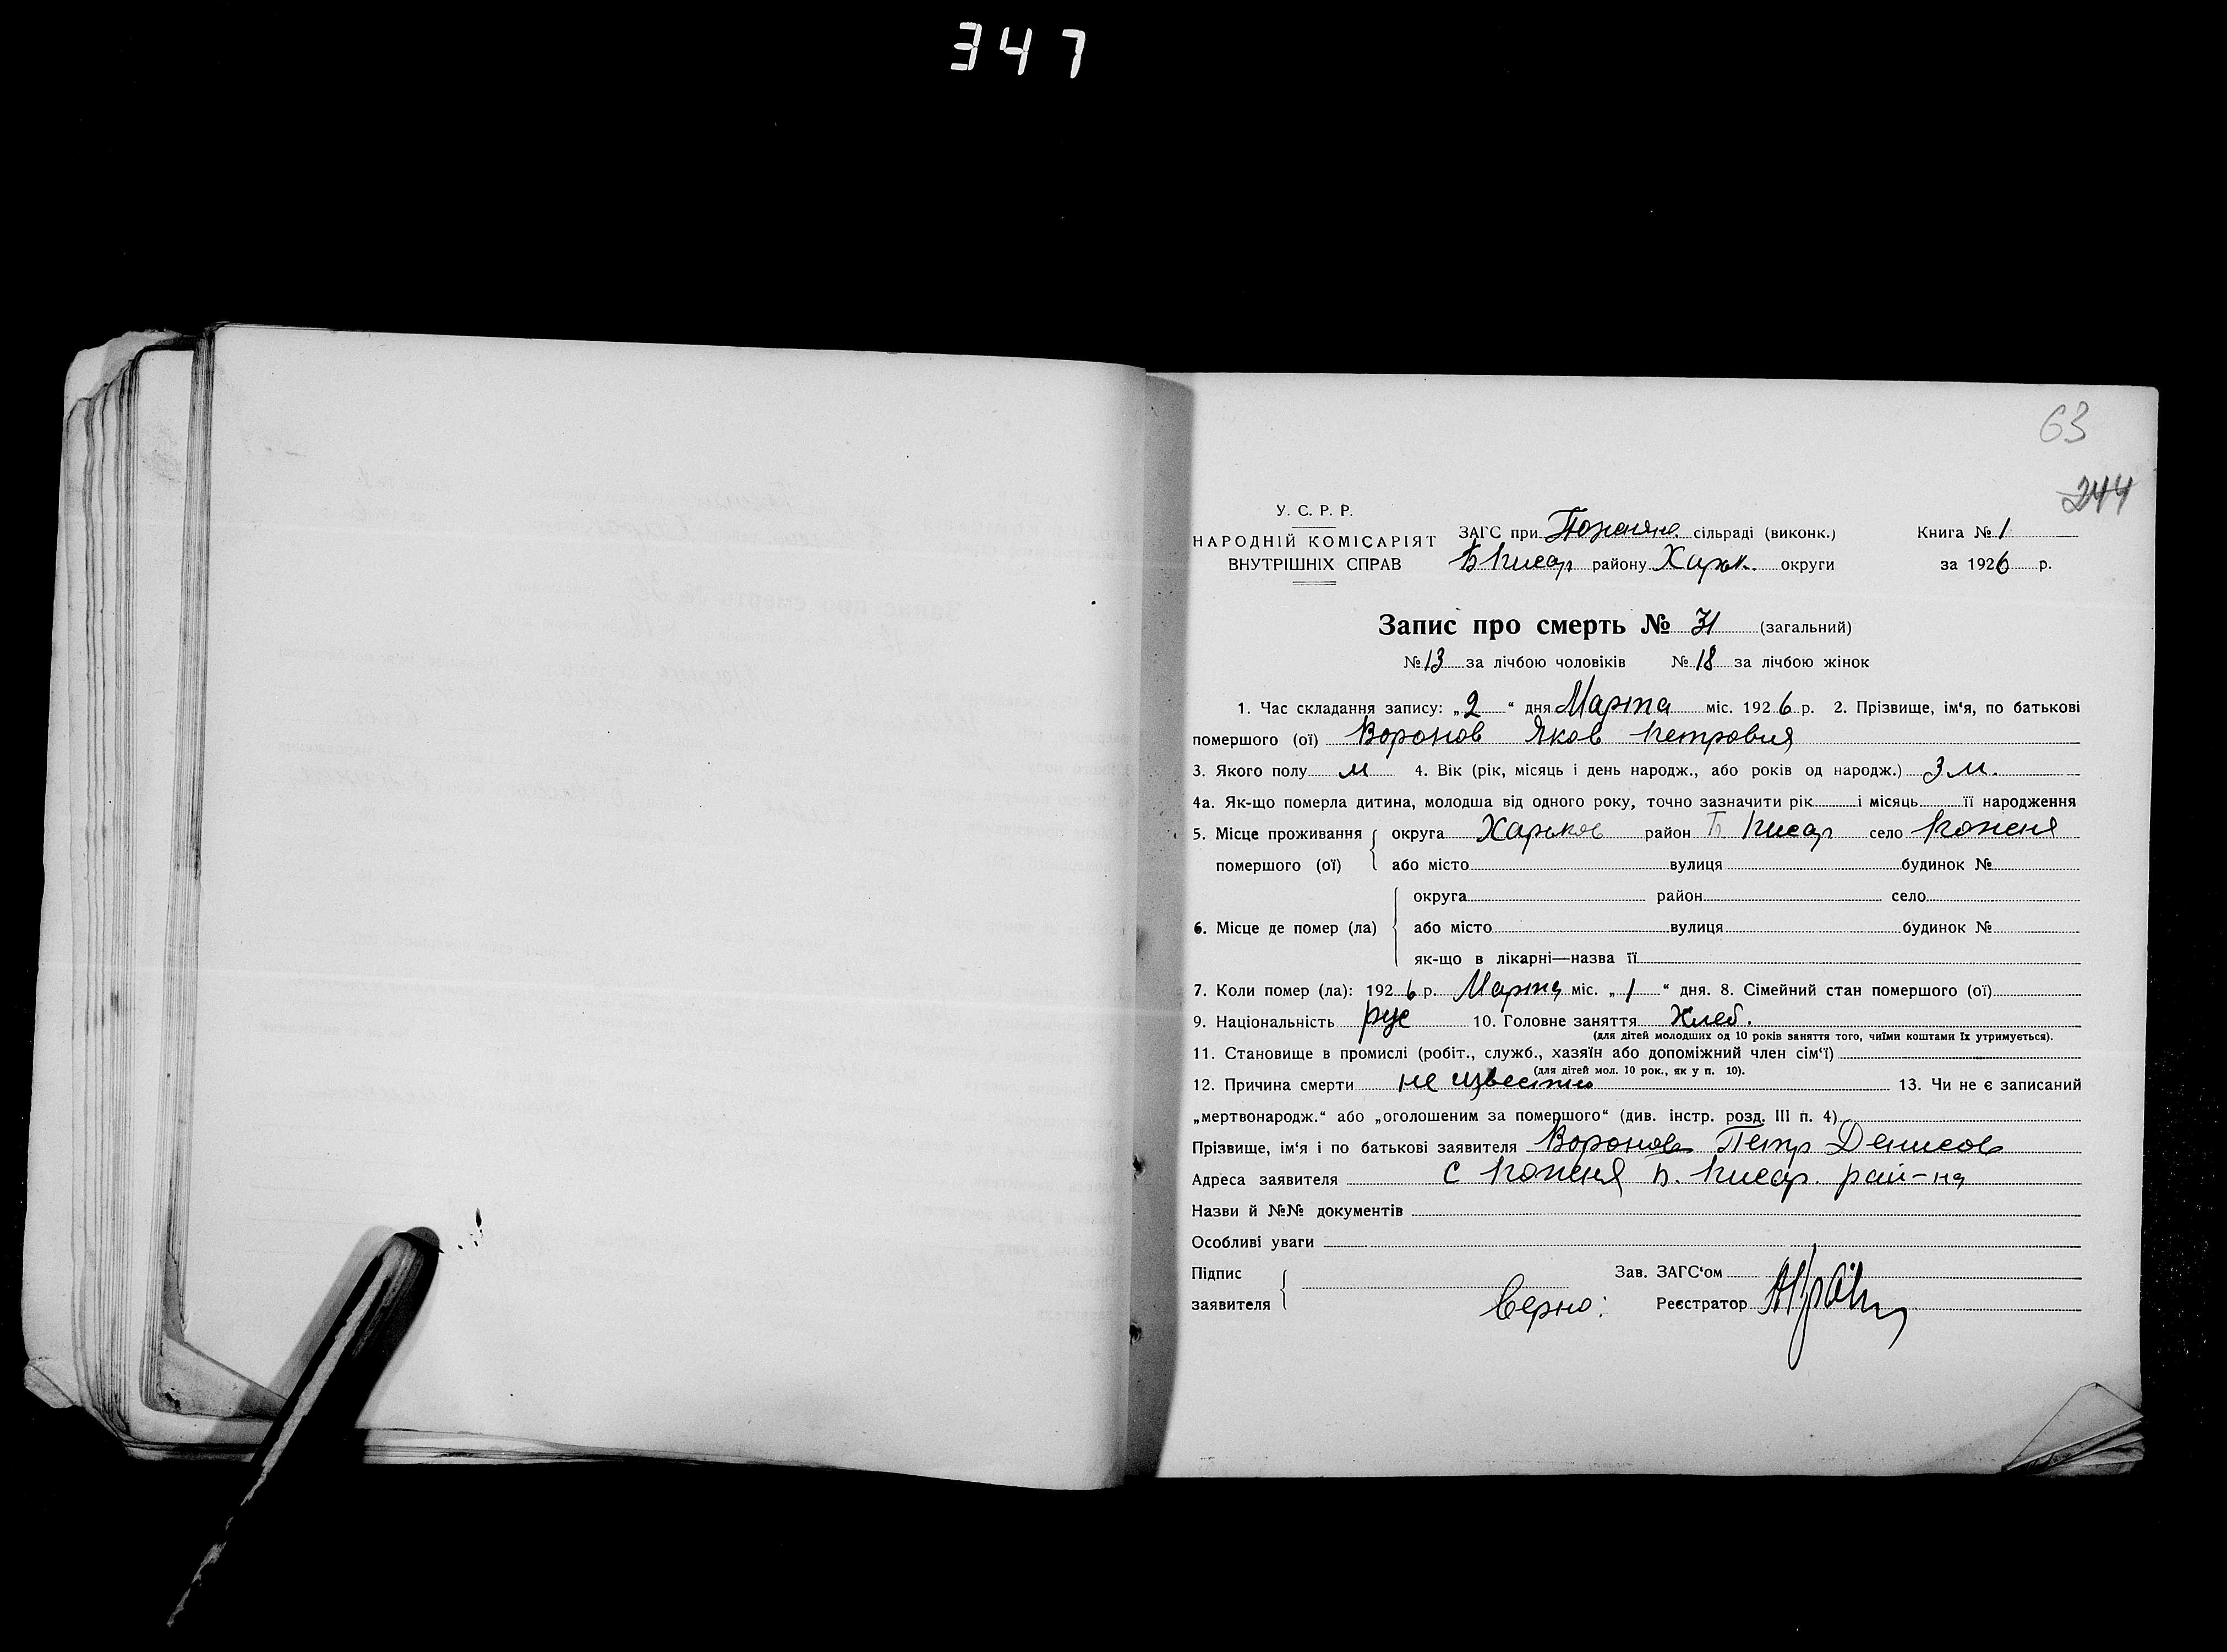 347
63
244
У. С. Р. Р.
НАРОДНІЙ КОМІСАРІЯТ
ВНУТРІШНІХ СПРАВ
ЗАГС при сільраді (виконк.)
району Харьк. округи
Книга № 1
за 1926 р.
Запис про смерть № 31 (загальний)
№ 13 за лічбою чоловіків № 18 за лічбою жінок
1. Час складання запису: „2“ дня Марта міс. 1926 р. 2. Прізвище, ім‘я, по батькові
помершого (ої) Воронов Яков Петрович
3. Якого полу м 4. Вік (рік, місяць і день народж., або років од народж.) 3 м.
4а. Як-що померла дитина, молодша від одного року, точно зазначити рік і місяць її народження
5. Місце проживання округа Харьков район Б Писар село
помершого (ої) або місто вулиця будинок №
округа район село
6. Місце де помер (ла) або місто вулиця будинок №
як-що в лікарні—назва її
7. Коли помер (ла): 1926 р. Марта міс. „1“ дня. 8. Сімейний стан помершого (ої)
9. Національність рус 10. Головне заняття Хлеб.
(для дітей молодших од 10 років заняття того, чиїми коштами їх утримується).
11. Становище в промислі (робіт., служб., хазяїн або допоміжний член сім‘ї)
(для дітей мол. 10 рок., як у п. 10).
12. Причина смерти не известно 13. Чи не є записаний
„мертвонародж.“ або „оголошеним за помершого“ (див. інстр. розд. III п. 4)
Прізвище, ім‘я і по батькові заявителя Воронов Петр Денисов
Адреса заявителя с Б. Писар. рай-на
Назви й №№ документів
Особливі уваги
Підпис
заявителя
Зав. ЗАГС‘ом
Верно: Реєстратор